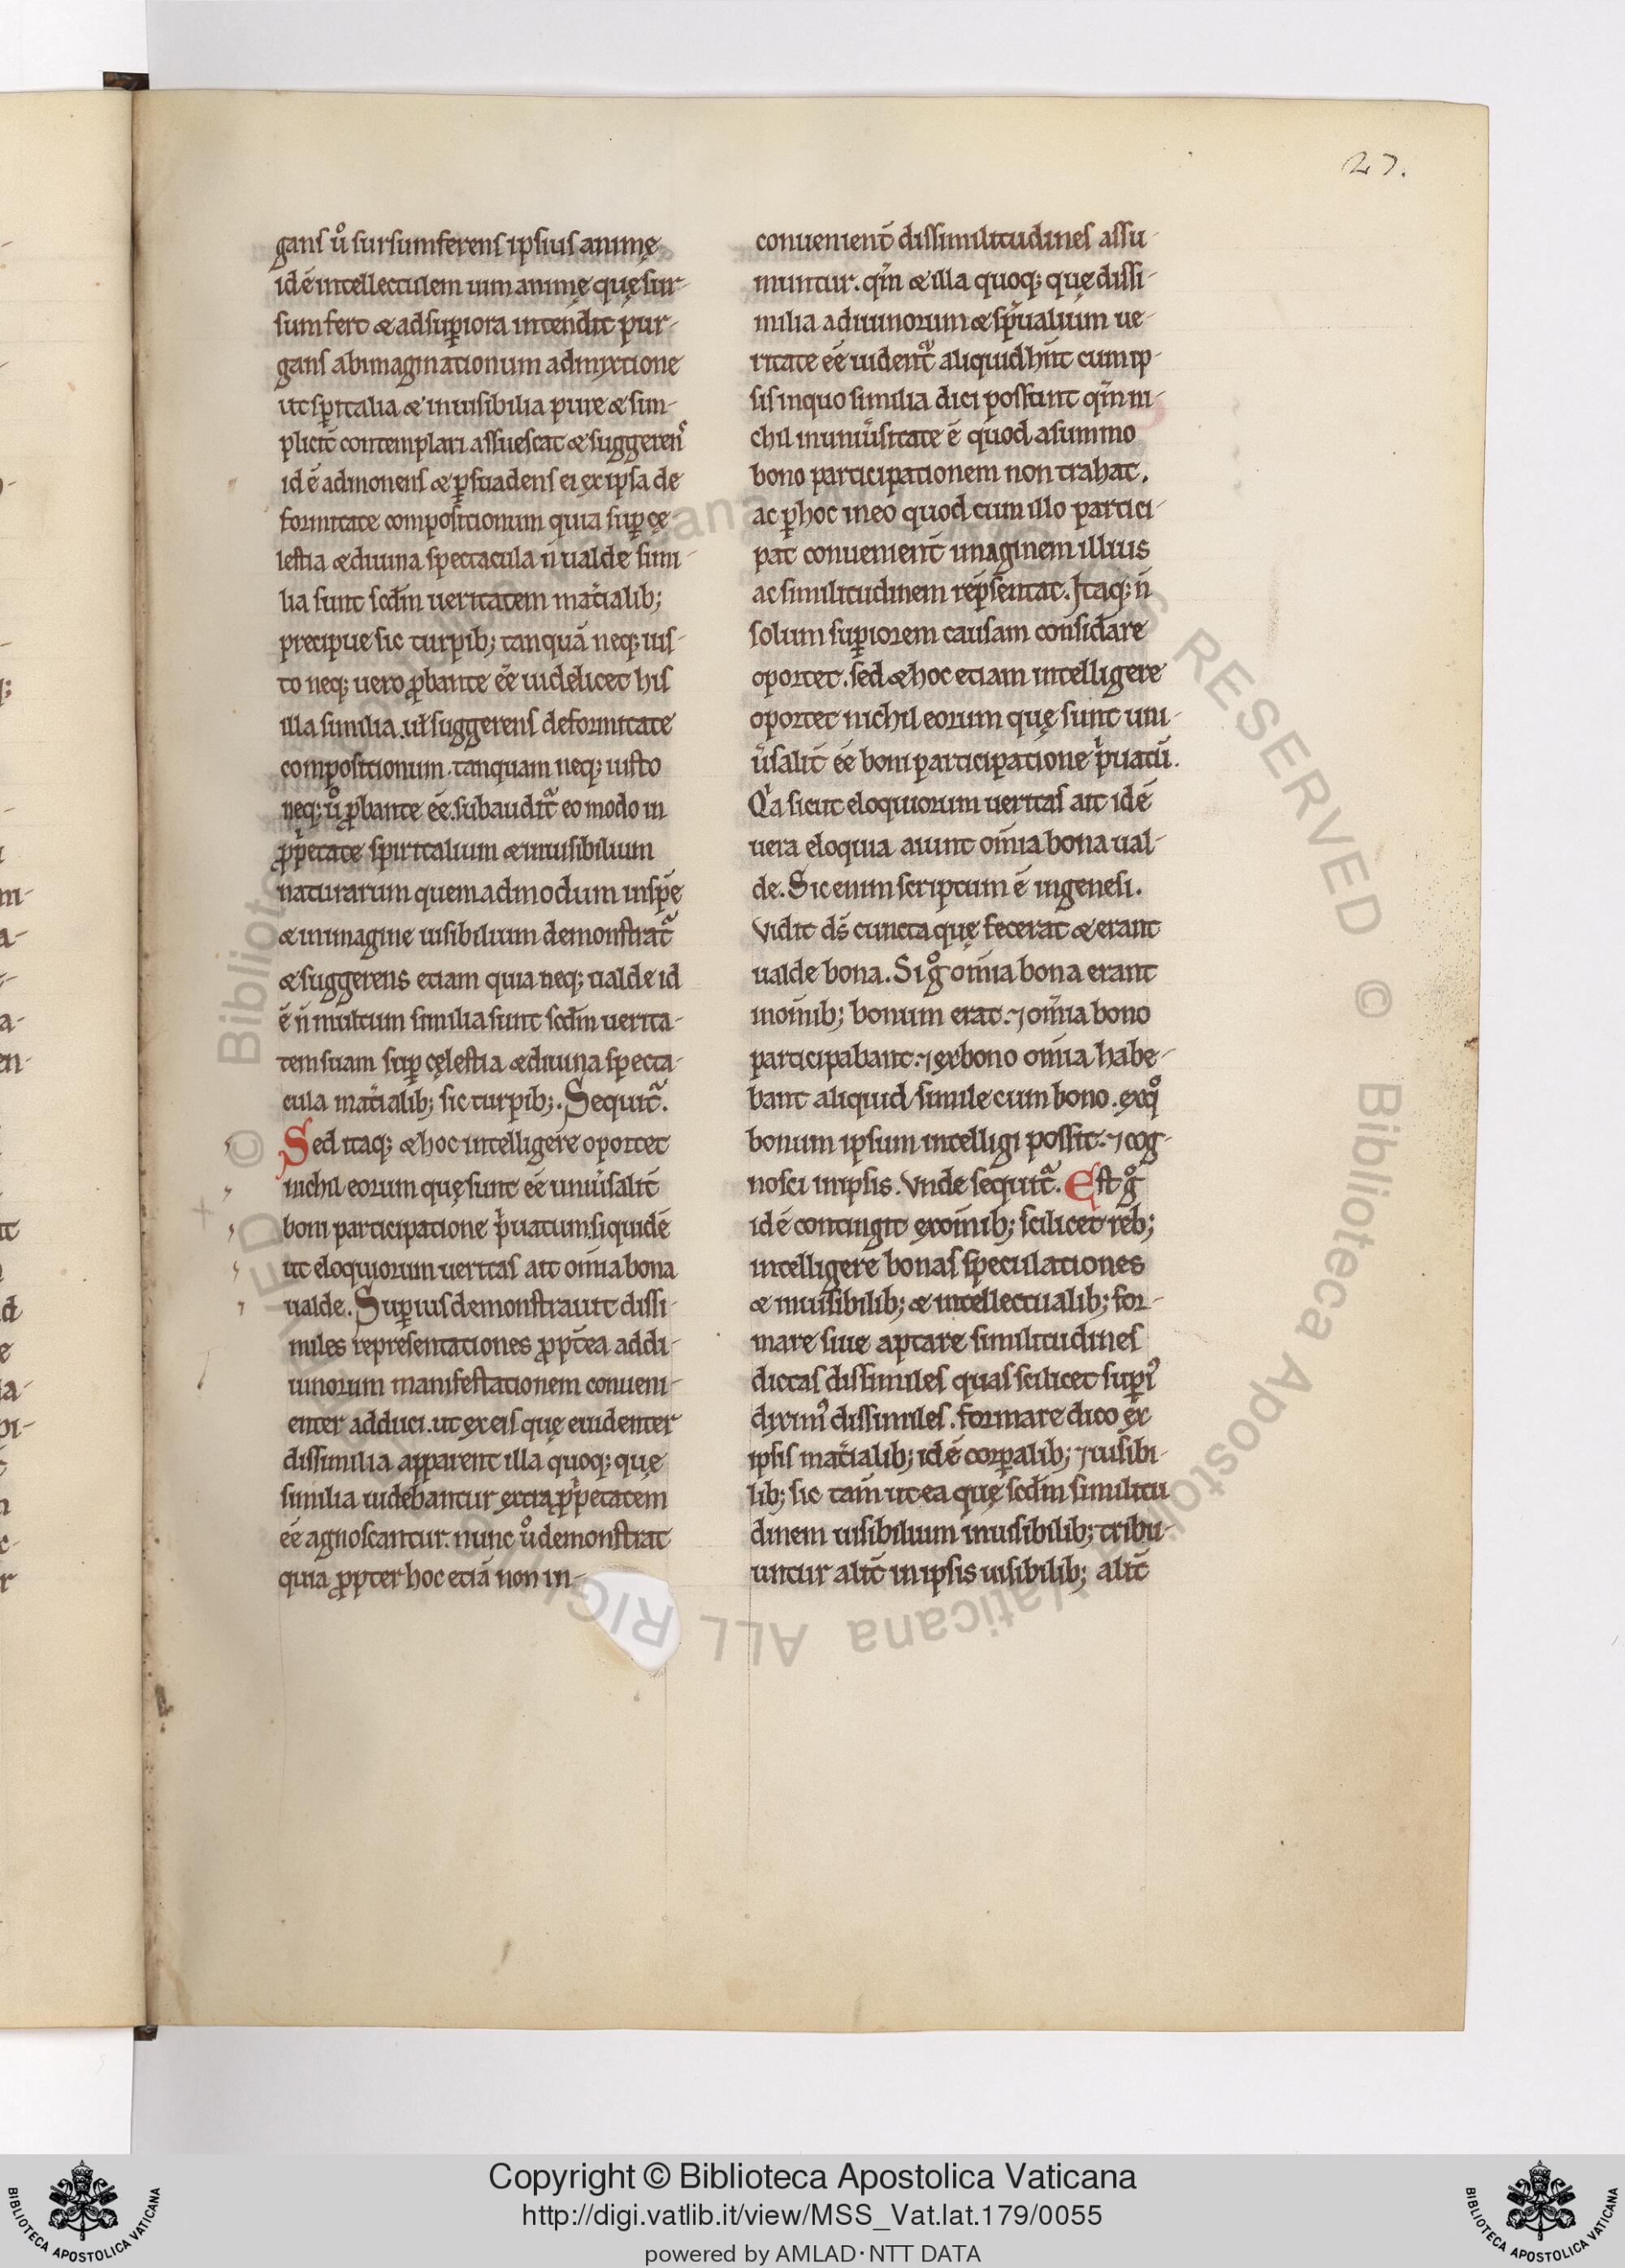 27.
gans u᷒ sursumferens ipsius animę
id ē intellectualem uim animę quę sur-
sum fert & ad suꝑiora intendit pur-
gans ab imaginationum admyxtione
ut spiritalia & inuisibilia pure & sim-
plicit̄ contemplari assuescat & suggerens
id ē admonens & ꝑsuadens ei ex ipsa de
formitate compositionum quia suꝑ cę-
lestia & diuina spectacula n̄ ualde simi-
lia sunt scdm̄ ueritatem mat̓ialib;
precipue sic turpib; tanquā neq; ius-
to neq; uero ꝓbante ee̅ uidelicet his
illa similia. uł suggerens deformitate
compositionum. tanquam neq; iusto
neq; uͦ ꝓbante ee̅. subaudit᷑ eo modo in
ꝓpͥetate spiritalium & inuisibilium
naturarum quemadmodum in spē
& in imagine uisibilium demonstrat᷑
& suggerens etiam quia neq; ualde id
ē n̄ multum similia sunt scdm̄ uerita-
tem suam suꝑ cęlestia & diuina specta-
cula mat̓ialib; sic turpib;. Sequit᷑.
Sed itaq; & hoc intelligere oportet
nichil eorum quę sunt ee̅ uniu̓salit̄
boni participatione pͥuatum. siquidē
ut eloquiorum ueritas ait om̄ia bona
ualde. Suꝑius demonstrauit dissi-
miles representationes ꝓpt̄ea ad di-
uinorum manifestationem conueni-
enter adduci. ut ex eis quę euidenter
dissimilia apparent illa quoq; quę
similia uidebantur extra ꝓpͥetatem
ee̅ agnoscantur. nunc uͦ demonstrat
quia ꝓpter hoc etiā non in-
conuenient̄ dissimilitudines assu-
muntur. qm̄ & illa quoq; quę dissi-
milia a diuinorum & spūalium ue-
ritate ee̅ uident᷑ aliquid hn̄t cum ip-
sis in quo similia dici possunt qm̄ ni-
chil in uniu̓sitate ē quod a summo
bono participationem non trahat.
ac ꝑ hoc in eo quod cum illo partici-
pat conuenient̄ imaginem illius
ac similitudinem rep̄sentat. Itaq; n̄
solum suꝑiorem causam consid̓are
oportet. sed & hoc etiam intelligere
oportet nichil eorum quę sunt uni-
u̓salit̄ ee̅ boni participatione pͥuatū.
Qͥa sicut eloquiorum ueritas ait id ē
uera eloquia aiunt om̄ia bona ual-
de. Sic enim scriptum ē in genesi.
Vidit ds̄ cuncta quę fecerat & erant
ualde bona. Si gͦ om̄ia bona erant
in om̄ib; bonum erat. ⁊ om̄ia bono
participabant. ⁊ ex bono om̄ia habe-
bant aliquid simile cum bono. ex qͦ
bonum ipsum intelligi possit. ⁊ cog-
nosci in ipsis. Vnde sequit᷑. Est gͦ
id ē contingit ex om̄ib; scilicet reb;
intelligere bonas speculationes
& inuisibilib; & intellectualib; for-
mare siue aptare similitudines
dictas dissimiles quas scilicet suꝑiꝰ
diximꝰ dissimiles. formare dico ex
ipsis mat̓ialib; id ē corꝑalib; ⁊ uisibi-
lib; sic tam̄ ut ea quę scdm̄ similitu
dinem uisibilium inuisibilib; tribu-
untur alit̄ in ipsis uisibilib; alit̄
Copyright © Biblioteca Apostolica Vaticana
http://digi.vatlib.it/view/MSS_Vat.lat.179/0055
powered by AMLAD·NTT DATA
BIBLIOTECA APOSTOLICA VATICANA
BIBLIOTECA APOSTOLICA VATICANA